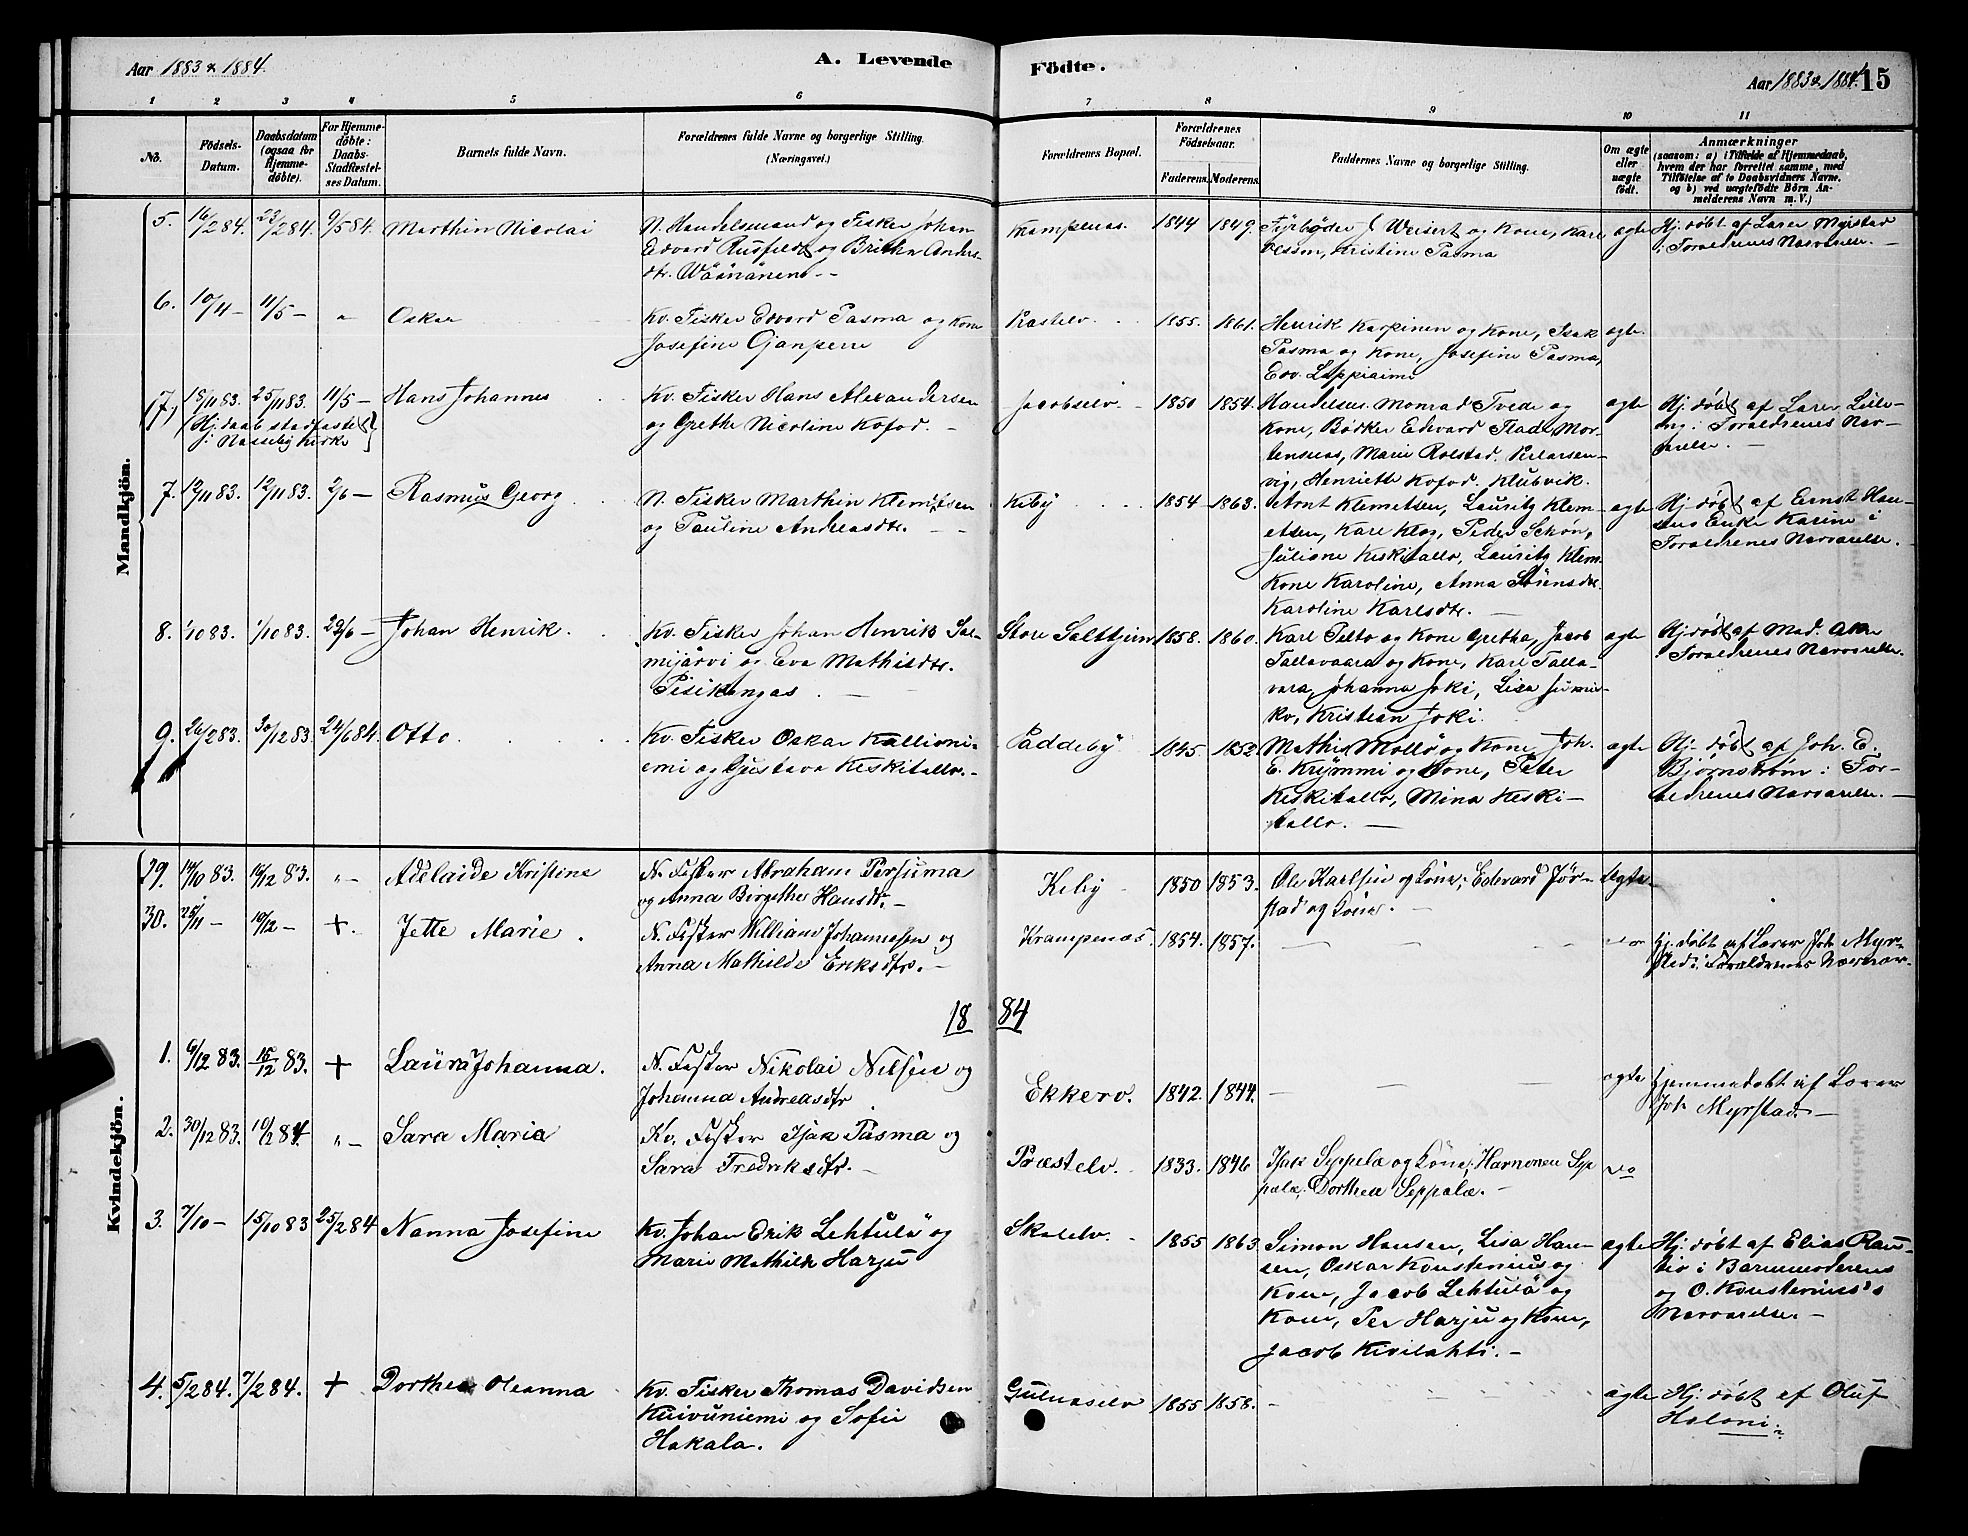 Aar 1883 & 1884.
A. Levende
Födte.
Aar 1883 & 1884.
15
1 2 3 4 5 6 7 8 9 10 11
No.
Födsels-
Datum.
Daabsdatum
(ogsaa for
Hjemme-
döbte).
For Hjemme-
döbte:
Daabs-
Stadfæstel-
ses Datum.
Barnets fulde Navn.
Forældrenes fulde Navne og borgerlige Stilling.
(Næringsvei.)
Forældrenes Bopæl.
Forældrenes
Födselsaar.
Faderens.
Moderens.
Faddernes Navne og borgerlige Stilling.
Om ægte
eller
uægte
födt.
Anmærkninger
(saasom: a) i Tilfælde af Hjemmedaab,
hvem der har forrettet samme, med
Tilföielse af to Daabsvidners Navne,
og b) ved uægtefödte Börn An-
melderens Navn m. V.)
Mandkjön.
5. 16/2 84. 23/2 84. 9/5 84. Marthin Nicolai
N. Handelsmand og Fisker Johan
Edvard Rusfeldt og Brithe Anders-
dtr. Wäänänen --
Kampenes. 1844 1849.
Fyrbøder Weisert og Kone, Karl
Olsson, Kristine Pasma
ægte
Hj. døbt af Lærer Myrstad
i Forældrenes Nærværelse. -
6. 10/4 - 11/5 - " Oskar
Kv. Fisker Edvard Pasma og Kone
Josefine Gjanperre
Præstelv. 1855. 1861.
Henrik Karpinen og Kone, Isak
Pasma og Kone, Josefine Pasma,
Edv. Lappiaimi
ægte.
(7) 15/11 83. 25/11 83. 11/5 - Hans Johannes
(Hj. daab stadfæstet
i Nasseby Kirke)
Kv. Fisker Hans Alexandersen
og Grethe Nicoline Kofod. -
Jacobselv. - 1850 1854.
Handelsm. Monrad Tvede og
Kone, Bødker Edevard Flade, Mor-
tensnæs, Marie Rolstad. Perlarsen-
vig, Henriette Kofod. Klubvik.
ægte
Hj. døbt af Lærer Lille-
eng i Forældrenes Nær-
værelse. -
7. 12/11 83. 12/11 83. 2/6 - Rasmus Georg
N. Fisker Marthin Klemetsen
og Pauline Andreasdtr. - -
Kiby 1854 1863.
Arnt Klemetsen, Lauritz Klem-
etsen, Karl Klog, Peder Schøn,
Juliane Keskitallo, Lauritz Klem.
Kone Karoline, Anna Sørensdtr.
Karoline Karlsdtr. -
ægte
Hj. døbt af Ernst Han-
sens Enke Karine i
Forældrenes Nærværelse.
8. 1/10 83. 1/10 83. 22/6 - Johan Henrik.
Kv. Fisker Johan Henrik Sal-
mijärvi og Eva Mathisdtr.
Pisikangas. -
Store Salttjern 1858. 1860.
Karl Pelto og Kone Gretha, Jacob
Tallavaara og Kone, Karl Talla-
vara, Johanna Joki, Lisa Jumis-
ko, Kristian Joki.
ægte
Hj. døbt af Mad. Aken
i Forældrenes Nærværelse.
9. 26/12 83. 30/12 83. 24/6 84. Otto.
Kv. Fisker Oskar Kallioni-
emi og Gustava Keskitallo. -
Paddeby 1845. 1852.
Mathis Mollö og Kone, Joh.
E. Krymmi og Kone, Peter
Keskitallo, Mina Keski-
tallo. -
ægte
Hj. døbt af Joh. E.
Bjørnstrøm i For-
ældrenes Nærværelse. -
Kvindekjön.
29. 14/10 83. 16/12 83. " - Adelaide Kristine
N. Fisker Abraham Persuma
og Anna Birgithe Hansdtr. -
Kiby - 1850 1853.
Ole Karlsen og Kone; Edevard Jør-
stad og Kone. -
ægte
30. 25/11 - 19/12 - +. Jette Marie.
N. Fisker William Johannesen og
Anna Mathilde Eriksdtr. -
Krampenæs. 1854. 1857.
do
hj. døbt af Lærer Joh. Myr-
stad i Forældrenes Nærvær.
18 84
1. 6/12 83. 15/12 83. + Laura Johanna.
N. Fisker Nikolai Nilsen og
Johanna Andreasdtr
Ekkerø. 1842. 1844.
ægte
hjemmedøbt af Lærer
Joh. Myrstad -
2. 30/12 83. 10/1 84 " - Sara Maria
Kv. Fisker Isak Pasma og
Sara Fredriksdtr. -
Præstelv. 1833. 1846
Isak Seppelæ og Kone; Harnonen Sep
pelæ; Dorthea Seppalæ. -
do
3. 7/10 - 15/10 83 25/2 84 Nanna Josefine
Kv. Johan Erik Lehtula og
Marie Mathilde Harju
Skalelv. - 1855 1863.
Simon Hansen, Lisa Han-
sen, Oskar Konstenius og
Kone, Jacob Lehtulä og
Kone, Per Harju og Kone,
Jacob Kivilahti. -
ægte
Hj. døbt af Elias Rau-
tio i Barnemoderens
og O. Konstenius's
Nærværelse. -
4. 5/2 84. 7/2 84. + Dorthea Oleanna
Kv. Fisker Thomas Davidsen
Kuivuniemi og Sofie
Hakala.
Gulnæselv 1855 1858.
ægte
Hj. døbt af Oluf
Haloni.